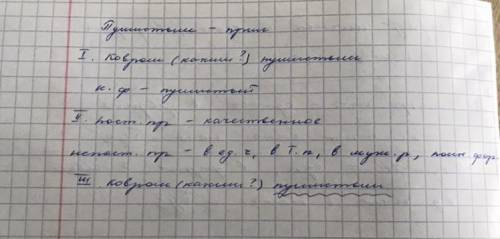 Пушистым – прил
I. Ковром (каким?) пушистым
н. ф – пушистый
II. пост. пр – качественное
непост. пр – в ед. ч, в Т. п, в муж. р, полн. фор.
III ковром (каким?) пушистым